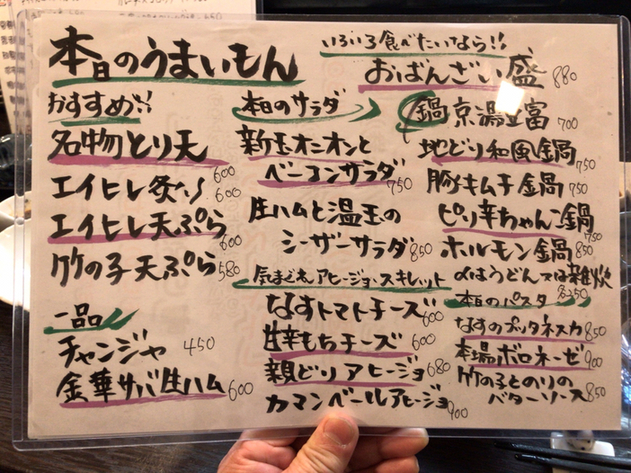 本日のうまいもん
いろいろ食べたいなら!!
おばんざい盛 880
おすすめ!!
名物とり天 600
エイヒレ炙り 600
エイヒレ天ぷら 600
竹の子天ぷら 580
一品
チャンジャ 450
金華サバ生ハム 600
本日のサラダ
新玉オニオンと
ベーコンサラダ 750
生ハムと温玉の
シーザーサラダ 850
気まぐれアヒージョ・スキレット
なすトマトチーズ 600
甘辛もちチーズ 600
親どりアヒージョ 680
カマンベールアヒージョ 900
鍋 京湯豆富 700
地どり和風鍋 750
豚キムチ鍋 750
ピリ辛ちゃんこ鍋 750
ホルモン鍋 850
〆はうどんor雑炊
350
本日のパスタ
なすのプッタネスカ 850
本場ボロネーゼ 900
竹の子とのりの
バターソース 850